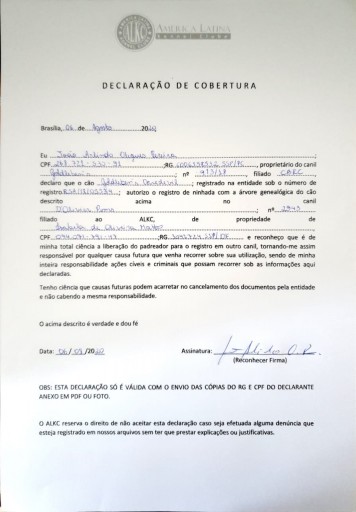 ALKC
AMERICA LATINA
KENNEL CLUBE
DECLARAÇÃO DE COBERTURA
Brasília, 06 de Agosto 2020
Eu
CPF RG , proprietário do canil
; nº 913/18, filiado CAEC
declaro que o cão ; registrado na entidade sob o número de
registro ; autorizo o registro de ninhada com a árvore genealógica do cão
descrito acima no canil
D'Oliveira ; nº
filiado ao ALKC, de propriedade de
de Oliveira Matos
CPF RG , e reconheço que é de
minha total ciência a liberação do padreador para o registro em outro canil, tornando-me assim
responsável por qualquer causa futura que venha recorrer sobre sua utilização, sendo de minha
inteira responsabilidade ações cíveis e criminais que possam recorrer sob as informações aqui
declaradas.
Tenho ciência que causas futuras podem acarretar no cancelamento dos documentos pela entidade
e não cabendo a mesma responsabilidade.
O acima descrito é verdade e dou fé
Data: 06/08/2020 Assinatura:
(Reconhecer Firma)
OBS: ESTA DECLARAÇÃO SÓ É VÁLIDA COM O ENVIO DAS CÓPIAS DO RG E CPF DO DECLARANTE
ANEXO EM PDF OU FOTO.
O ALKC reserva o direito de não aceitar esta declaração caso seja efetuada alguma denúncia que
esteja registrado em nossos arquivos sem ter que prestar explicações ou justificativas.